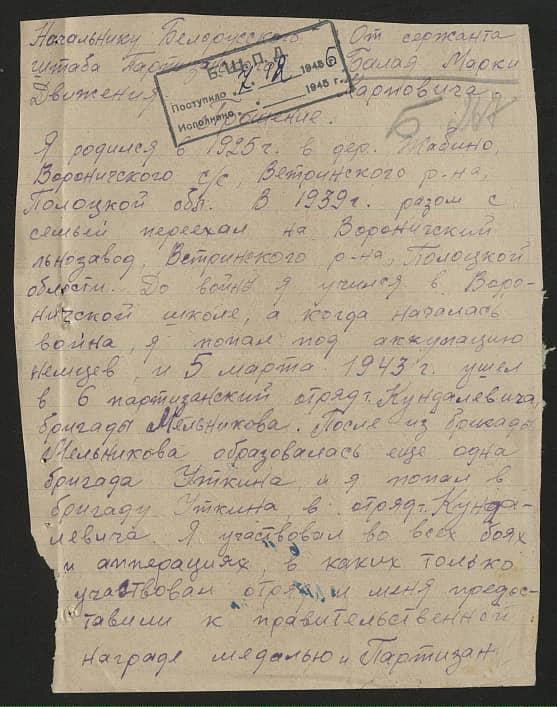 Начальнику Белорусского
штаба Партизанского
Движения
От сержанта
Балая Марки
Карповича
Б.Ш.П.Д.
Поступило 1945 6
Исполнено 1945 г.
Прошение.
Б
Я родился в 1925г. в дер. Жабино,
Вороничского с/с, Ветринского р-на,
Полоцкой обл. В 1939г. разом с
семьей переехал на Вороничский
льнозавод, Ветринского р-на, Полоцкой
области. До войны я учился в Воро-
ничской школе, а когда началась
война, я попал под аккупацию
немцев, и 5 марта 1943 г. ушел
в 6 партизанский отряд т. Кундалевича,
бригады Мельникова. После из бригады
Мельникова образовалась еще одна
бригада Уткина и я попал в
бригаду Уткина, в отряд т. Кунда-
левича. Я участвовал во всех боях
и апперациях, в каких только
участвовал отряд и меня предос-
тавили к правительственной
награде медалью и Партизан